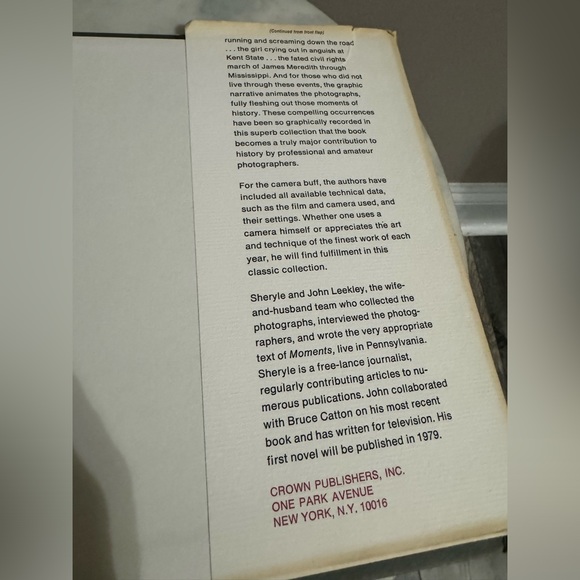 (Continued from front flap)
running and screaming down the road
. . . the girl crying out in anguish at
Kent State . . . the fated civil rights
march of James Meredith through
Mississippi. And for those who did not
live through these events, the graphic
narrative animates the photographs,
fully fleshing out those moments of
history. These compelling occurrences
have been so graphically recorded in
this superb collection that the book
becomes a truly major contribution to
history by professional and amateur
photographers.
For the camera buff, the authors have
included all available technical data,
such as the film and camera used, and
their settings. Whether one uses a
camera himself or appreciates the art
and technique of the finest work of each
year, he will find fulfillment in this
classic collection.
Sheryle and John Leekley, the wife-
and-husband team who collected the
photographs, interviewed the photog-
raphers, and wrote the very appropriate
text of Moments, live in Pennsylvania.
Sheryle is a free-lance journalist,
regularly contributing articles to nu-
merous publications. John collaborated
with Bruce Catton on his most recent
book and has written for television. His
first novel will be published in 1979.
CROWN PUBLISHERS, INC.
ONE PARK AVENUE
NEW YORK, N.Y. 10016